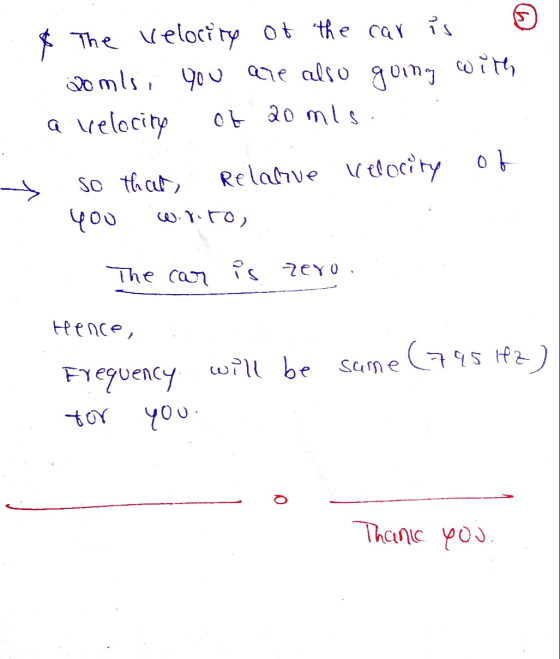 5
* The velocity of the car is
20m/s, you are also going with
a velocity of 20 m/s.
→ so that, Relative velocity of
you w.r.to,
The car is zero.
Hence,
Frequency will be same (795 Hz)
for you.
Thank you.